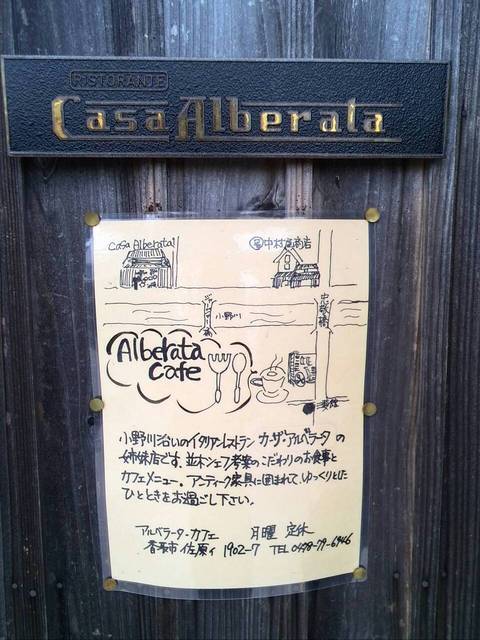 RISTORANTE
Casa Alberata
Casa Alberata
中村屋商店
小野川
忠敬橋
Alberata
Cafe
小野川沿いのイタリアンレストラン カーザ・アルベラータ の
姉妹店です。並木シェフ考案のこだわりのお食事と
カフェメニュー。アンティーク家具に囲まれて、ゆっくりとした
ひとときをお過ごし下さい。
アルベラータ・カフェ 月曜 定休
香取市 佐原イ 1902-7 TEL 0478-79-6946